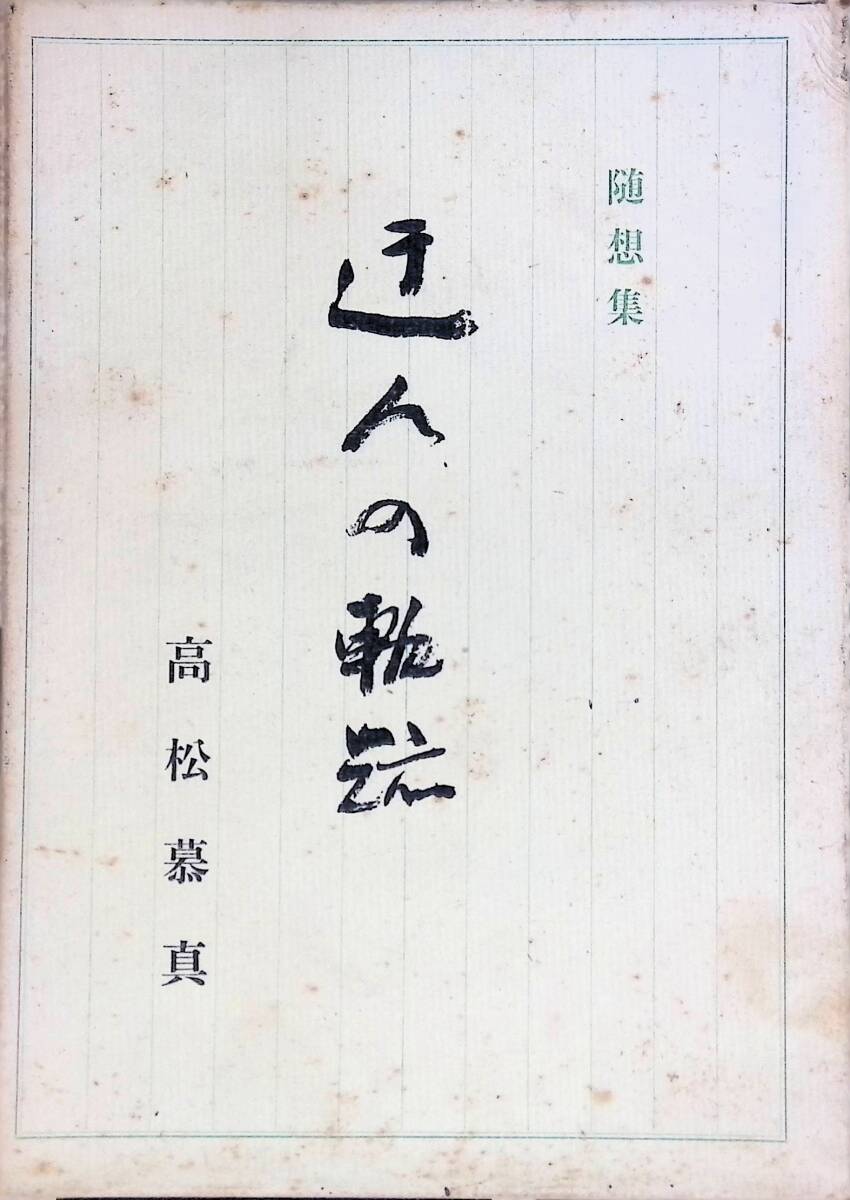 随想集
迂人の軌跡
高松慕真